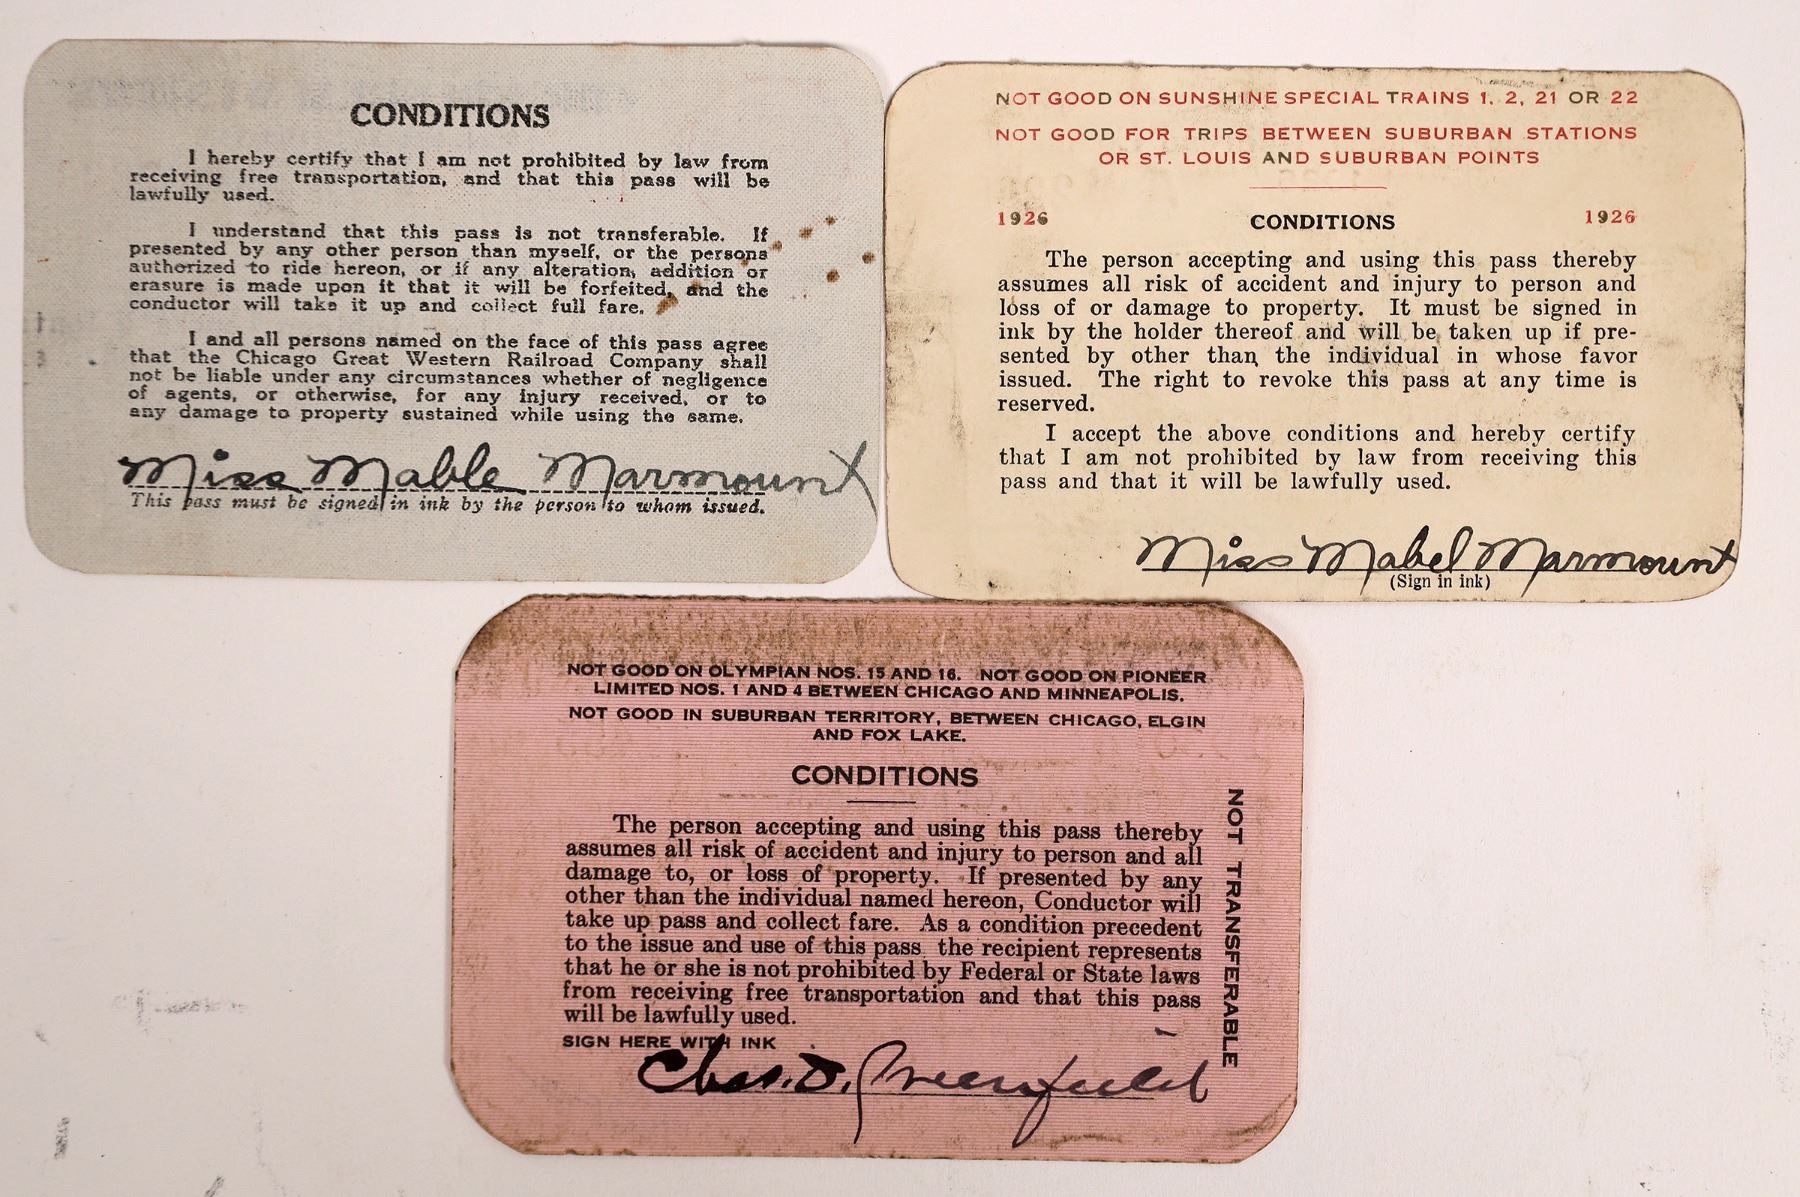 CONDITIONS
I hereby certify that I am not prohibited by law from
receiving free transportation, and that this pass will be
lawfully used.
I understand that this pass is not transferable. If
presented by any other person than myself, or the persons
authorized to ride hereon, or if any alteration, addition or
erasure is made upon it that it will be forfeited, and the
conductor will take it up and collect full fare.
I and all persons named on the face of this pass agree
that the Chicago Great Western Railroad Company shall
not be liable under any circumstances whether of negligence
of agents, or otherwise, for any injury received, or to
any damage to property sustained while using the same.
Miss Mable Marmount
This pass must be signed in ink by the person to whom issued.
NOT GOOD ON SUNSHINE SPECIAL TRAINS 1, 2, 21 OR 22
NOT GOOD FOR TRIPS BETWEEN SUBURBAN STATIONS
OR ST. LOUIS AND SUBURBAN POINTS
1926 CONDITIONS 1926
The person accepting and using this pass thereby
assumes all risk of accident and injury to person and
loss of or damage to property. It must be signed in
ink by the holder thereof and will be taken up if pre-
sented by other than the individual in whose favor
issued. The right to revoke this pass at any time is
reserved.
I accept the above conditions and hereby certify
that I am not prohibited by law from receiving this
pass and that it will be lawfully used.
Miss Mabel Marmount
(Sign in ink)
NOT GOOD ON OLYMPIAN NOS. 15 AND 16. NOT GOOD ON PIONEER
LIMITED NOS. 1 AND 4 BETWEEN CHICAGO AND MINNEAPOLIS.
NOT GOOD IN SUBURBAN TERRITORY, BETWEEN CHICAGO, ELGIN
AND FOX LAKE.
CONDITIONS
The person accepting and using this pass thereby
assumes all risk of accident and injury to person and all
damage to, or loss of property. If presented by any
other than the individual named hereon, Conductor will
take up pass and collect fare. As a condition precedent
to the issue and use of this pass the recipient represents
that he or she is not prohibited by Federal or State laws
from receiving free transportation and that this pass
will be lawfully used.
SIGN HERE WITH INK
Chas. D. Greenfield
NOT TRANSFERABLE